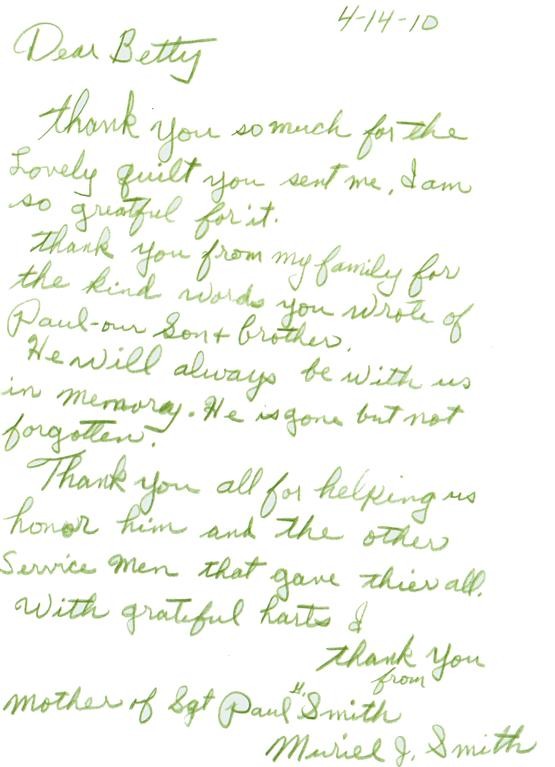 4-14-10
Dear Betty
thank you so much for the
Lovely quilt you sent me, I am
so greatful for it.
thank you from my family for
the kind words you wrote of
Paul-our Son + brother.
He will always be with us
in memory. He is gone but not
forgotten.
Thank you all for helping us
honor him and the other
Service Men that gave thier all.
With grateful harts I
thank you
from
Mother of Sgt Paul H. Smith
Muriel J. Smith